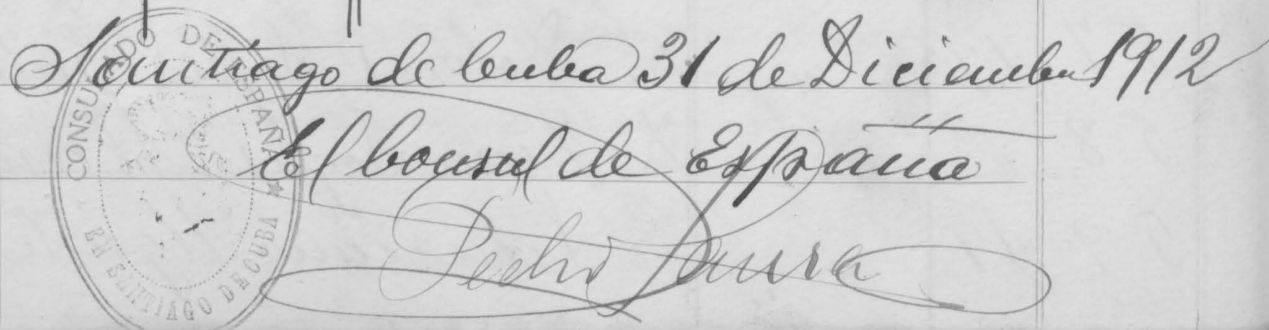 Santiago de Cuba 31 de Diciembre 1912
El Consul de España
Pedro
CONSULADO DE ESPAÑA
EN SANTIAGO DE CUBA